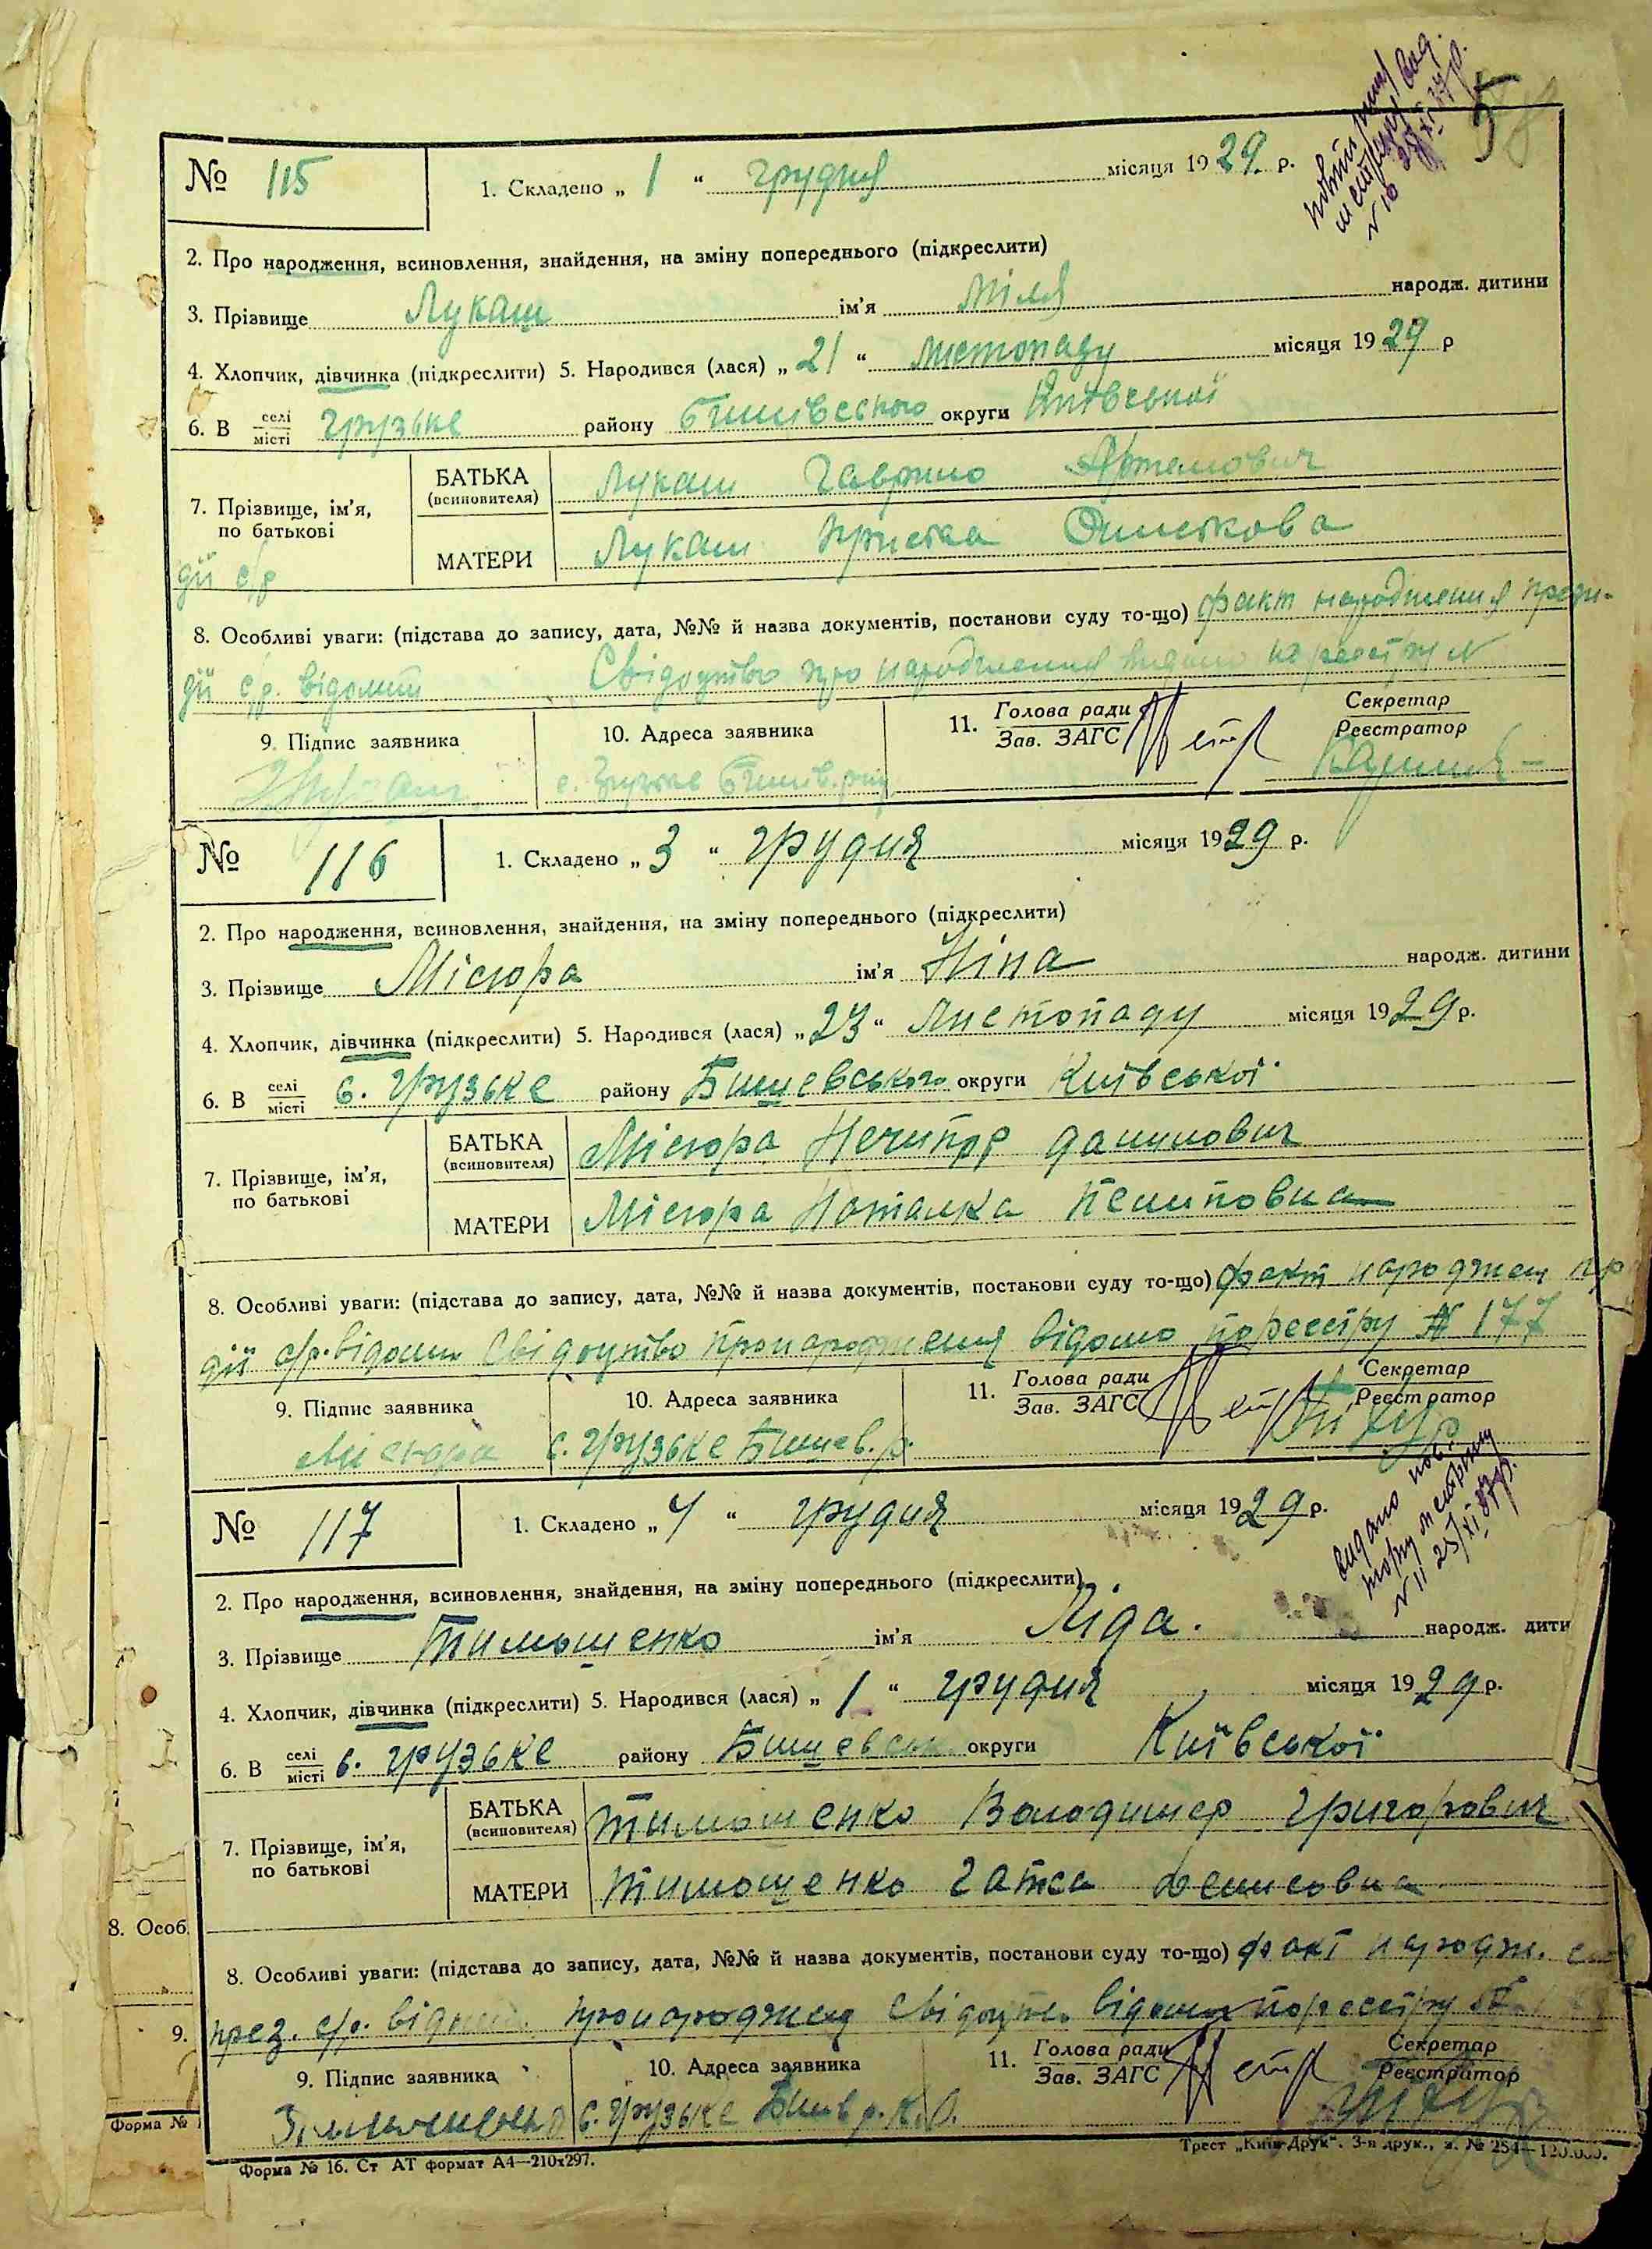 5
№ 115
1. Складено „ 1 “ грудня місяця 1929. р.
2. Про народження, всиновлення, знайдення, на зміну попереднього (підкреслити)
3. Прізвище Лукаш ім'я Міля народж. дитини
4. Хлопчик, дівчинка (підкреслити) 5. Народився (лася) „ 21 “ листопаду місяця 1929 р
6. В селі/місті Грузьке району округи Київської
7. Прізвище, ім'я, по батькові
БАТЬКА (всиновителя) Лукаш Гаврило Артемович
МАТЕРИ Лукаш Христа
дії с/р
8. Особливі уваги: (підстава до запису, дата, №№ й назва документів, постанови суду то-що) факт народження прези-
дії с/р. відомий Свідоцтво про народження видано по реєстру №
9. Підпис заявника
10. Адреса заявника
11. Голова ради/Зав. ЗАГС
Секретар/Реєстратор
с. Грузьке
№ 116
1. Складено „ 3 “ грудня місяця 1929 р.
2. Про народження, всиновлення, знайдення, на зміну попереднього (підкреслити)
3. Прізвище Місюра ім'я Ніна народж. дитини
4. Хлопчик, дівчинка (підкреслити) 5. Народився (лася) „ 23 “ листопаду місяця 1929 р.
6. В селі/місті с. Грузьке району Бишевського округи Київської
7. Прізвище, ім'я, по батькові
БАТЬКА (всиновителя) Місюра Нечипор Данилович
МАТЕРИ МісюраНоталка Пилиповна
8. Особливі уваги: (підстава до запису, дата, №№ й назва документів, постанови суду то-що) факт народжен пр
дії с/р. відомий Свідоцтво про народження відано по реєстру № 177
9. Підпис заявника
10. Адреса заявника
11. Голова ради/Зав. ЗАГС
Секретар/Реєстратор
Місюра с. Грузьке Бишев. р.
№ 117
1. Складено „ 4 “ грудня місяця 1929 р.
2. Про народження, всиновлення, знайдення, на зміну попереднього (підкреслити)
3. Прізвище Тимошенко ім'я Ліда. народж. дити
4. Хлопчик, дівчинка (підкреслити) 5. Народився (лася) „ 1 “ грудня місяця 1929 р.
6. В селі/місті с. Грузьке району Бишевськ округи Київської
7. Прізвище, ім'я, по батькові
БАТЬКА (всиновителя) Тимошенко Володимер Григорович
МАТЕРИ Тимошенко Гапка Денисовна
8. Особ.
8. Особливі уваги: (підстава до запису, дата, №№ й назва документів, постанови суду то-що) факт народж.
през. с/р. про народжен Свідоцтво відано по реєстру №
9.
9. Підпис заявника
10. Адреса заявника
11. Голова ради/Зав. ЗАГС
Секретар/Реєстратор
с. Грузьке Бишв р. К. О.
Форма №
Форма № 16. Ст АТ формат А4—210х297.
Трест „Київ-Друк“. 3-я друк., з. № 254—120.000.